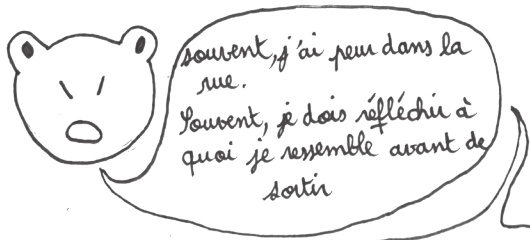 souvent, j'ai peur dans la
rue.
Souvent, je dois réfléchir à
quoi je ressemble avant de
sortir